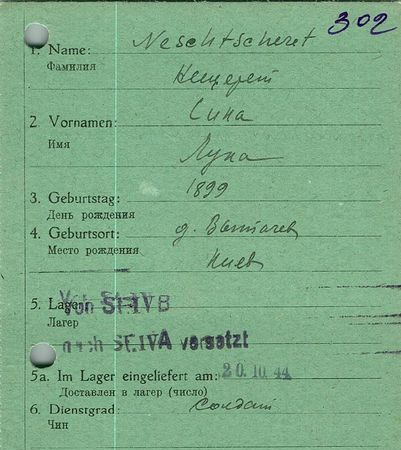 302
1. Name: Neschtscheret
Фамилия Нещерет
2. Vornamen: Сила
Имя
Лука
3. Geburtstag: 1899
День рождения
4. Geburtsort: д.
Место рождения Киев
5. Lager: Von St.IVB
Лагер
nach St.IVA versetzt
5a. Im Lager eingeliefert am: 20.10.44
Доставлен в лагер (число)
6. Dienstgrad: солдат
Чин